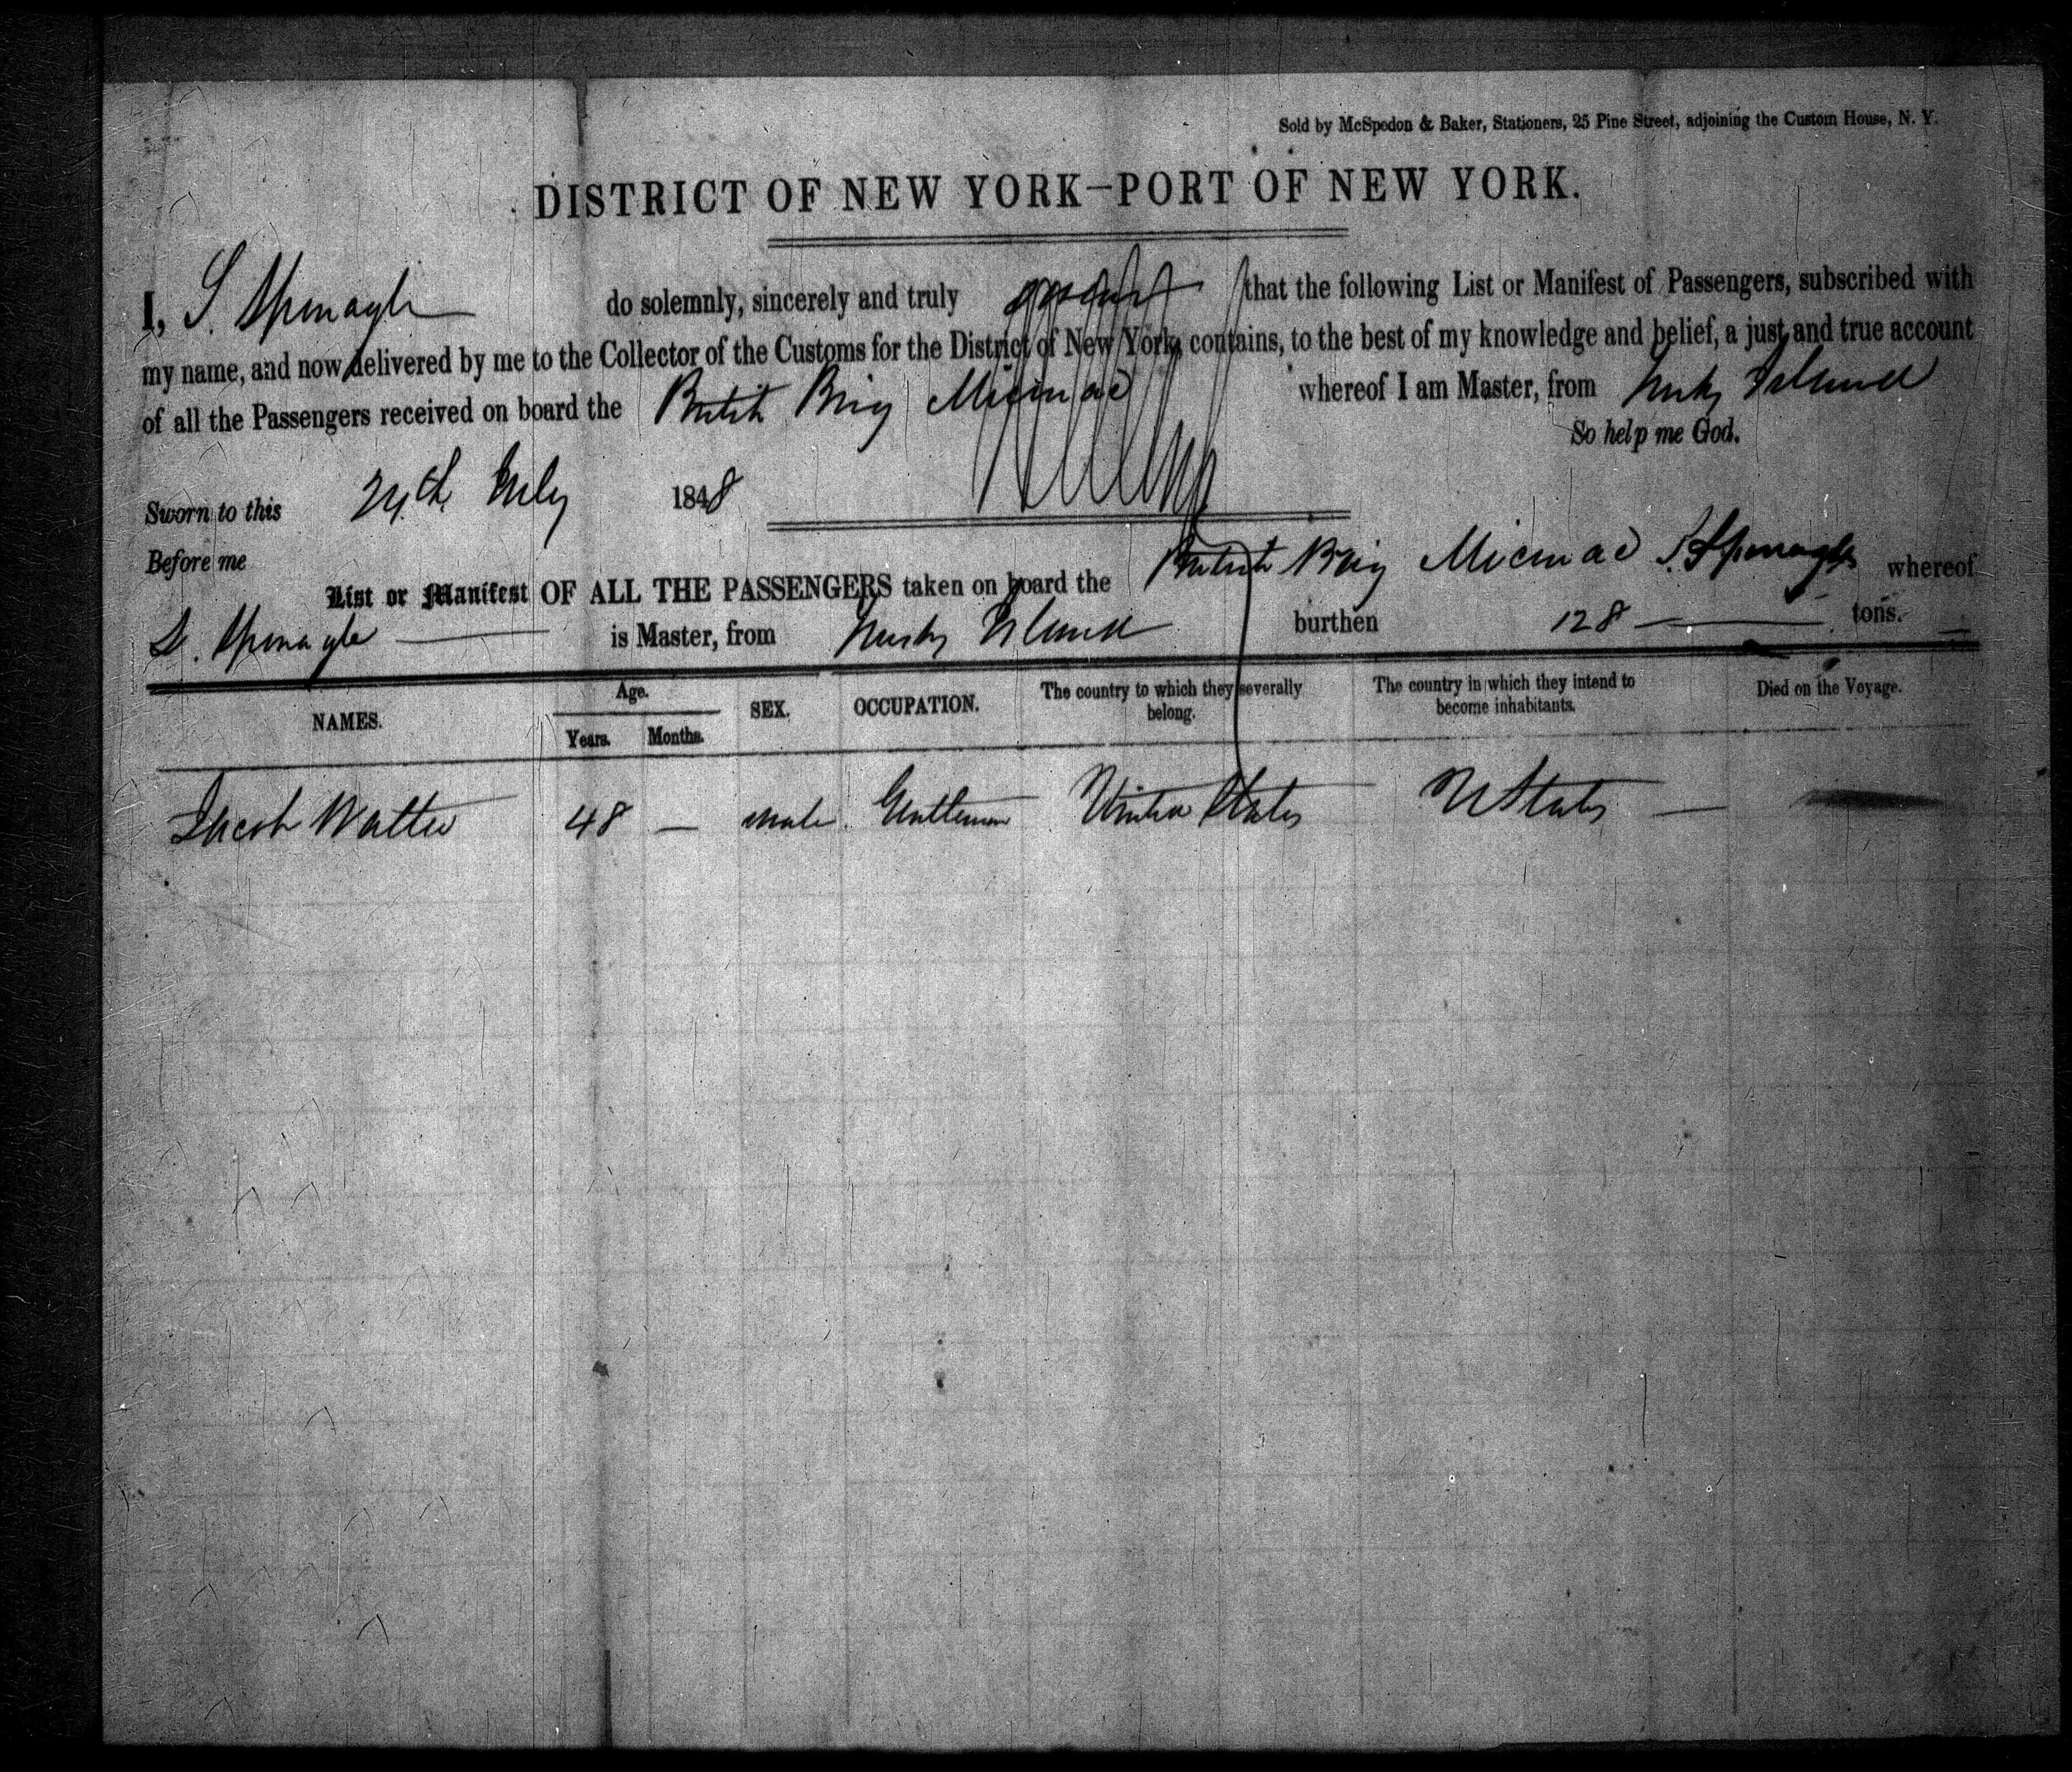 Sold by McSpedon & Baker, Stationers, 25 Pine Street, adjoining the Custom House, N. Y.
DISTRICT OF NEW YORK—PORT OF NEW YORK.
I, S. Spenagle do solemnly, sincerely and truly that the following List or Manifest of Passengers, subscribed with
my name, and now delivered by me to the Collector of the Customs for the District of New York, contains, to the best of my knowledge and belief, a just and true account
of all the Passengers received on board the British Brig Micmac whereof I am Master, from Turks Island
So help me God.
Sworn to this 24th July 1848
Before me
List or Manifest OF ALL THE PASSENGERS taken on board the British Brig Micmac S. Spenagle whereof
S. Spenagle is Master, from Turks Island burthen 128 tons.
NAMES. Age. SEX. OCCUPATION. The country to which they severally belong. The country in which they intend to become inhabitants. Died on the Voyage.
Years. Months.
Jacob Walter 48 — male Gentleman United States U States —